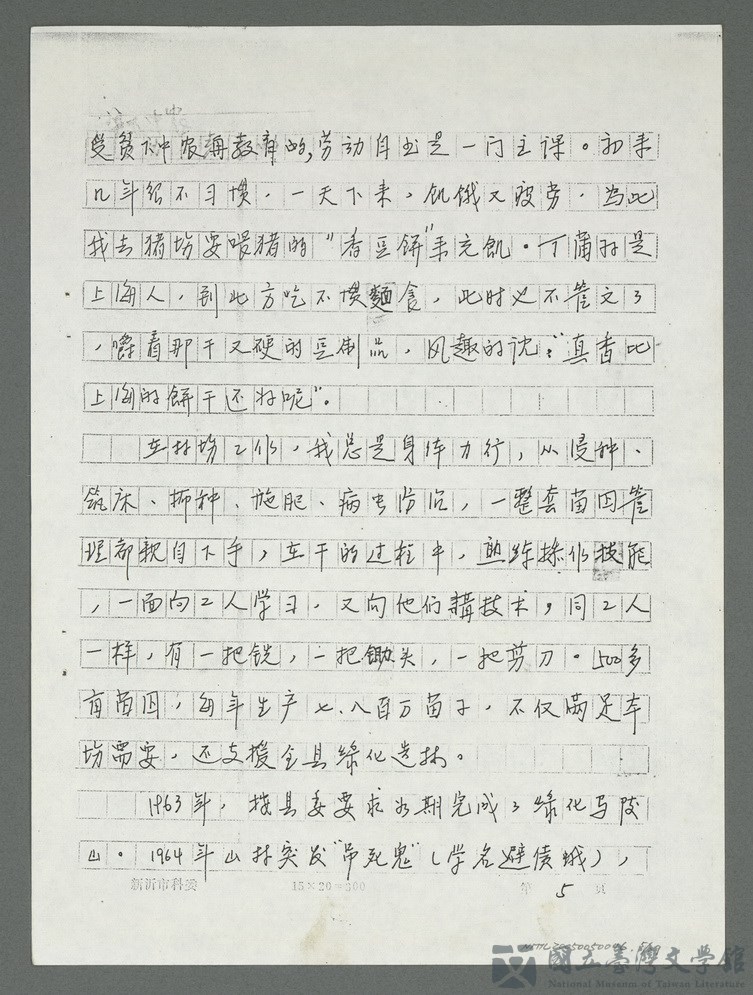 受贫下中农再教育的,劳动自然是一门主课。初来
几年很不习惯,一天下来,饥饿又疲劳,为此
我去猪场要喂猪的“香豆餅”来充飢。丁蒲好是
上海人,到北方吃不惯麵食,此时也不管文了
,嚼着那干又硬的豆制品,风趣的说:“真香比
上海的餅干还好呢”。
在林场工作,我总是身体力行,从浸种、
筑床、播种、施肥、病虫防治,一整套苗田管
理都親自下手,在干的过程中,熟练操作技能
,一面向工人学习,又向他们講技术,同工人
一样,有一把铣,一把鋤头,一把剪刀。500多
亩苗田,每年生产七、八百万苗子,不仅满足本
场需要,还支援全县绿化造林。
1963年,按县委要求如期完成了绿化马陵
山。1964年山林突发“吊死鬼”(学名避债蛾),
新沂市科委
15×20=300
第 5 页
國立臺灣文學館
National Museum of Taiwan Literature